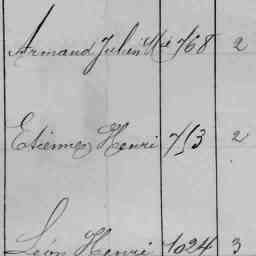 Armand Julien Mie 768 2
Etienne Henri 753 2
Léon Henri 1024 3